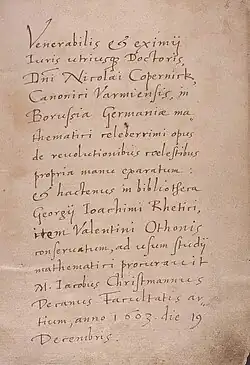 Venerabilis & eximij
Iuris utriusq Doctoris,
Dni Nicolai Copernick
Canonici Varmiensis, in
Borussia Germaniæ ma
thematici celeberrimi opus
de revolutionibus cœlestibus
propria manu exaratum :
& hactenus in bibliotheca
Georgij Ioachimi Rhetici,
item Valentini Othonis
conservatum, ad usum studij
mathematici procuravit
M. Iacobus Christmannus
Decanus Facultatis ar
tium, anno 1603. die 19
Decembris.